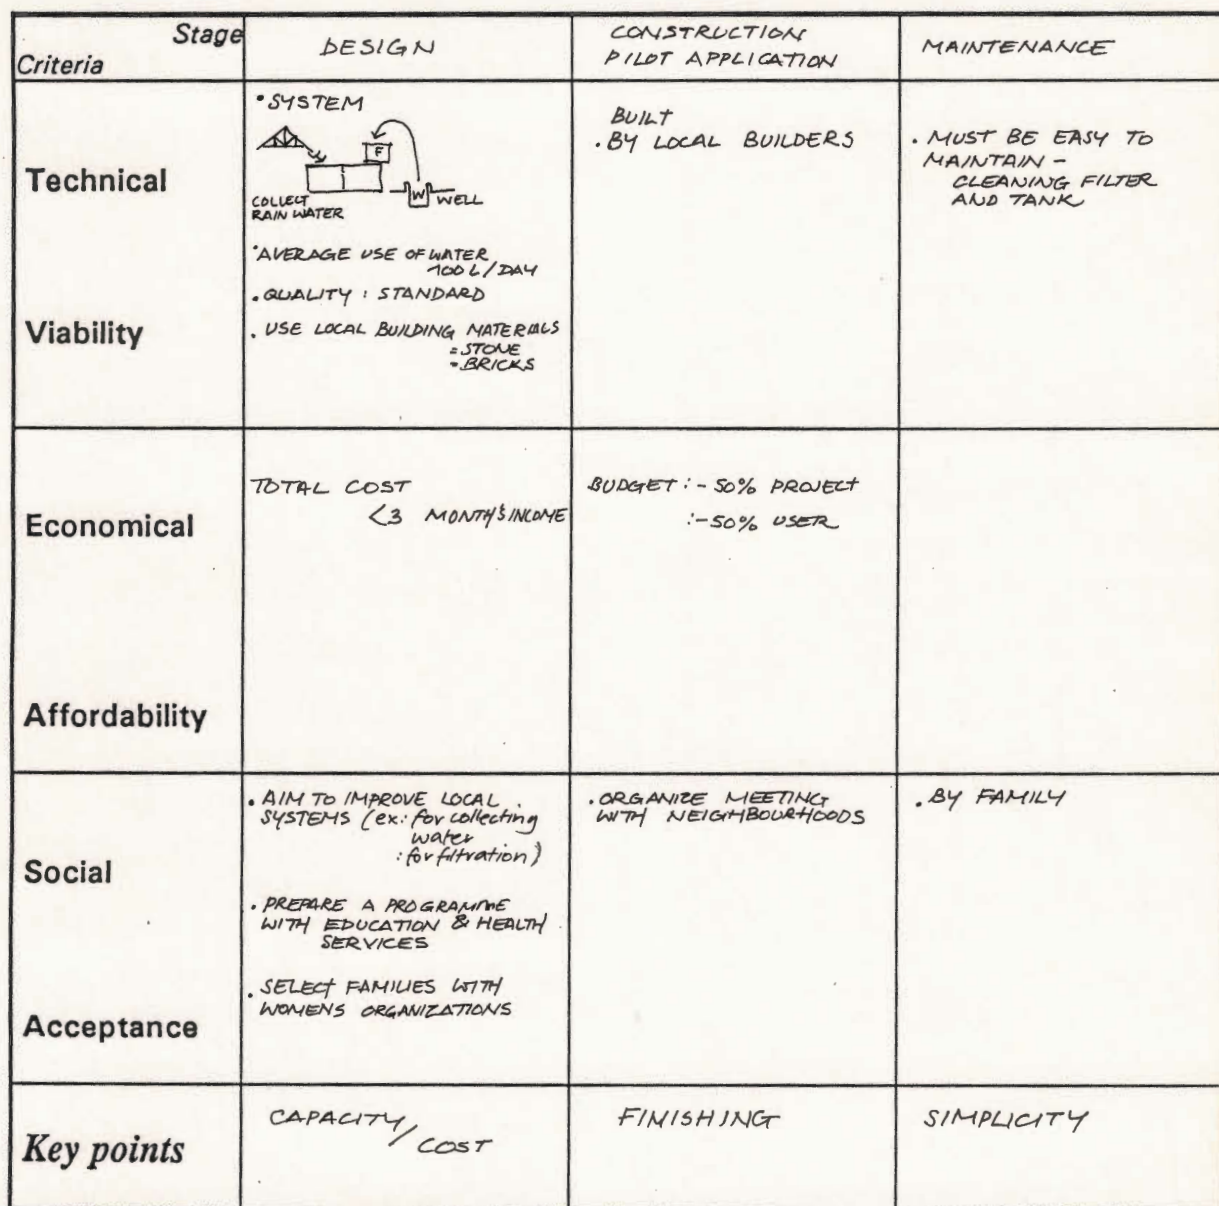 Stage
Criteria
DESIGN
CONSTRUCTION
PILOT APPLICATION
MAINTENANCE
Technical
Viability
• SYSTEM
F
W
WELL
COLLECT
RAIN WATER
• AVERAGE USE OF WATER
100 L/DAY
• QUALITY : STANDARD
• USE LOCAL BUILDING MATERIALS
= STONE
- BRICKS
BUILT
• BY LOCAL BUILDERS
• MUST BE EASY TO
MAINTAIN -
CLEANING FILTER
AND TANK
Economical
Affordability
TOTAL COST
<3 MONTH'S INCOME
BUDGET : - 50% PROJECT
: - 50% USER
Social
Acceptance
• AIM TO IMPROVE LOCAL
SYSTEMS (ex: for collecting
water
: for filtration)
• PREPARE A PROGRAMME
WITH EDUCATION & HEALTH
SERVICES
• SELECT FAMILIES WITH
WOMENS ORGANIZATIONS
• ORGANIZE MEETING
WITH NEIGHBOURHOODS
• BY FAMILY
Key points
CAPACITY/
COST
FINISHING
SIMPLICITY